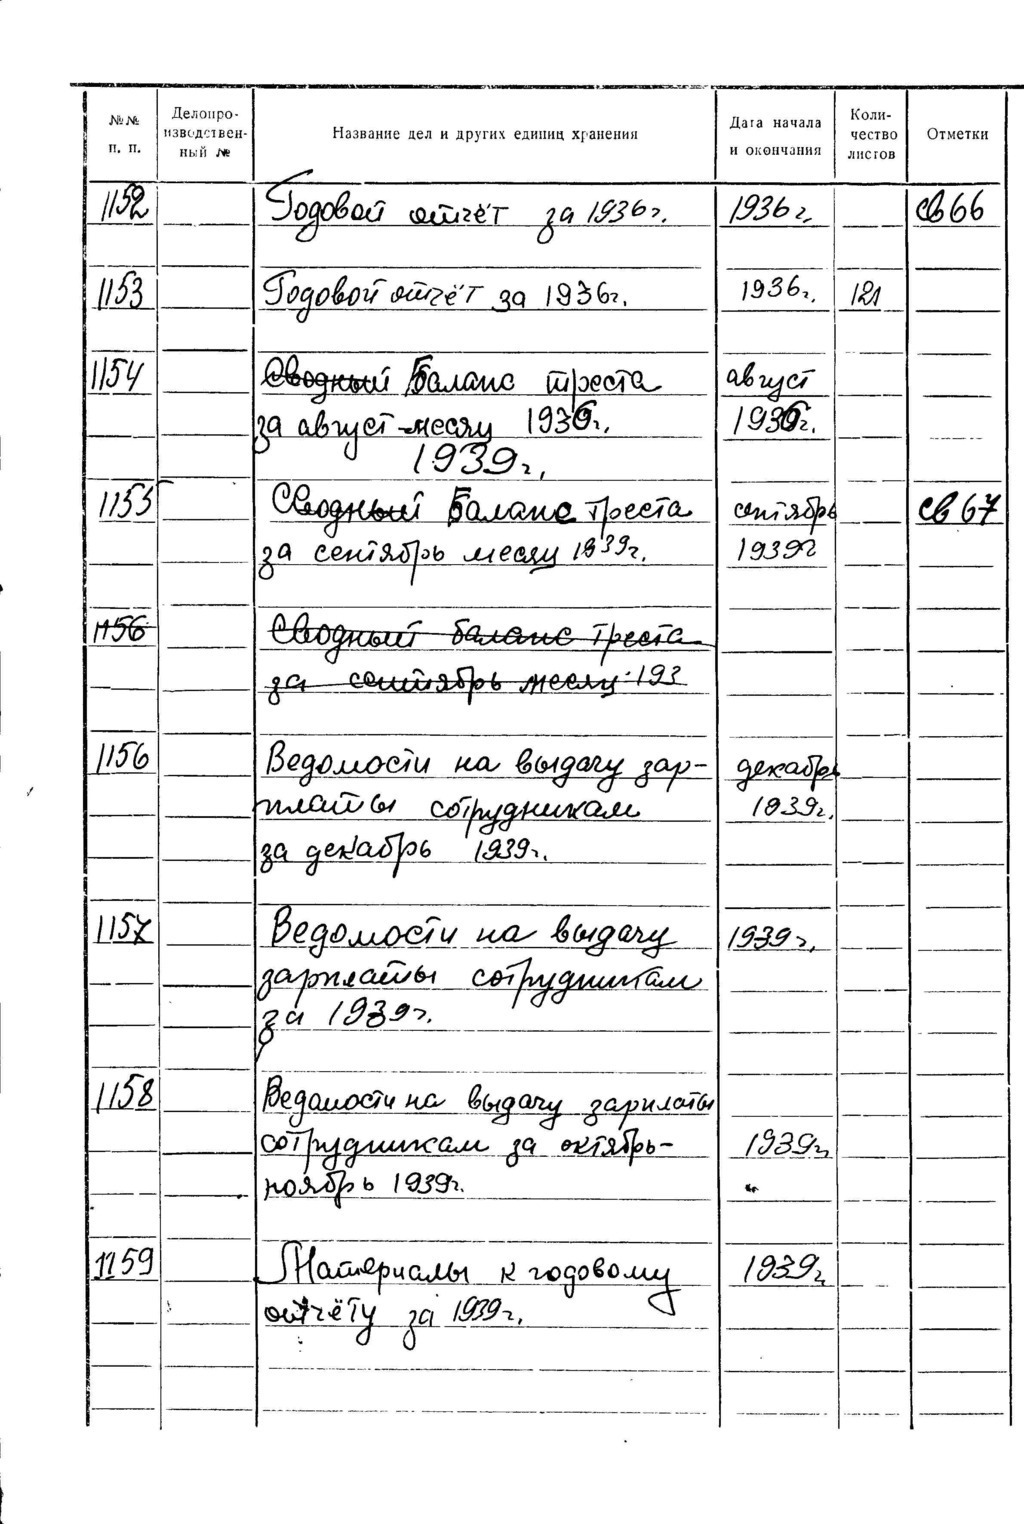 №№ п. п. Делопроизводственный № Название дел и других единиц хранения Дата начала и окончания Количество листов Отметки
1152 Годовой отчёт за 1936г. 1936г. св 66
1153 Годовой отчёт за 1936г. 1936г. 121
1154 Сводный Баланс треста август
за август-месяц 1936г. 1936г.
1939г.
1155 Сводный Баланс треста сентябрь св 67
за сентябрь месяц 1939г. 1939г
1156 Сводный баланс треста
за сентябрь месяц 193
1156 Ведомости на выдачу зар- декабрь
платы сотрудникам 1939г.
за декабрь 1939г.
1157 Ведомости на выдачу 1939г.
зарплаты сотрудникам
за 1939г.
1158 Ведомости на выдачу зарплаты
сотрудникам за октябрь- 1939г
ноябрь 1939г.
1159 Материалы к годовому 1939г
отчёту за 1939г.